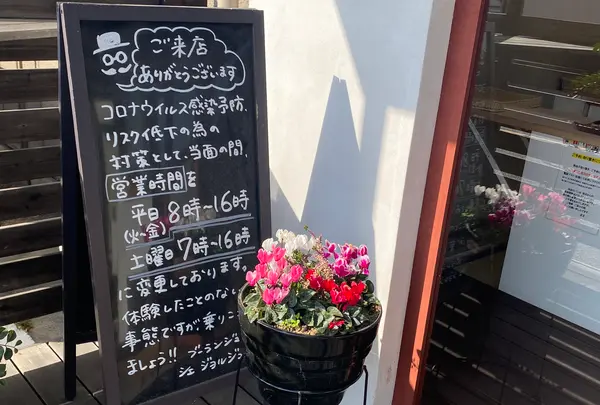 ご来店
ありがとうございます
コロナウイルス感染予防、
リスク低下の為の
対策として、当面の間、
営業時間を
平日 8時〜16時
(火〜金)
土曜日 7時〜16時
に変更しております。
体験したことのない
事態ですが、乗りこ
ましょう!! ブーランジェ
シェ ジョルジ